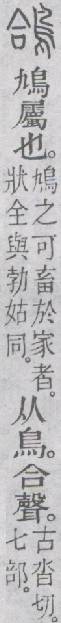 鴿
鳩屬也。鳩之可畜於家者。
狀全與勃姑同。
从鳥。合聲。古沓切。
七部。